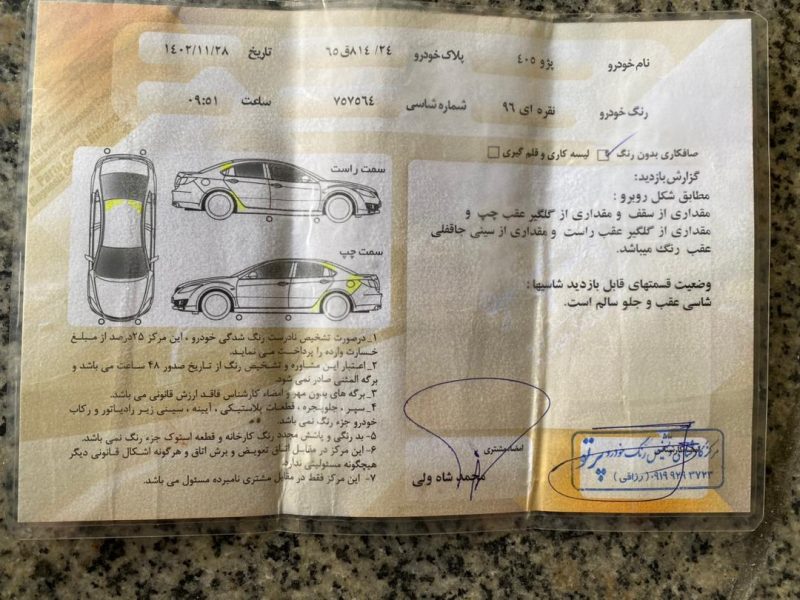 نام خودرو پژو ۴۰۵ پلاک خودرو ۲۴/ ۸۱۴ق۶۵ تاریخ ۱۴۰۲/۱۱/۲۸
رنگ خودرو نقره ای ۹۶ شماره شاسی ۷۵۷۵۶۴ ساعت ۰۹:۵۱
صافکاری بدون رنگ لیسه کاری و قلم گیری
گزارش بازدید:
مطابق شکل روبرو :
مقداری از سقف و مقداری از گلگیر عقب چپ و
مقداری از گلگیر عقب راست و مقداری از سینی جاقفلی
عقب رنگ میباشد.
وضعیت قسمتهای قابل بازدید شاسیها:
شاسی عقب و جلو سالم است.
سمت راست
سمت چپ
۱_درصورت تشخیص نادرست رنگ شدگی خودرو ، این مرکز ۲۵درصد از مبلغ
خسارت وارده را پرداخت می نماید.
۲_اعتبار این مشاوره و تشخیص رنگ از تاریخ صدور ۴۸ ساعت می باشد و
برگه المثنی صادر نمی شود.
۳_ برگه های بدون مهر و امضاء کارشناس فاقد ارزش قانونی می باشد.
۴_ سپر ، جلوپنجره ، قطعات پلاستیکی ، آیینه ، سینی زیر رادیاتور و رکاب
خودرو جزء رنگ نمی باشد.
۵- بد رنگی و پاشش مجدد رنگ کارخانه و قطعه استوک جزء رنگ نمی باشد.
۶- این مرکز در مقابل اتاق تعویض و برش اتاق و هرگونه اشکال قانونی دیگر
هیچگونه مسئولیتی ندارد.
۷- این مرکز فقط در مقابل مشتری نامبرده مسئول می باشد.
امضاء مشتری
محمد شاه ولی
پرتو
۰۹۱۹ ۹۲۹ ۳۷۲۳ ( رزاقی )